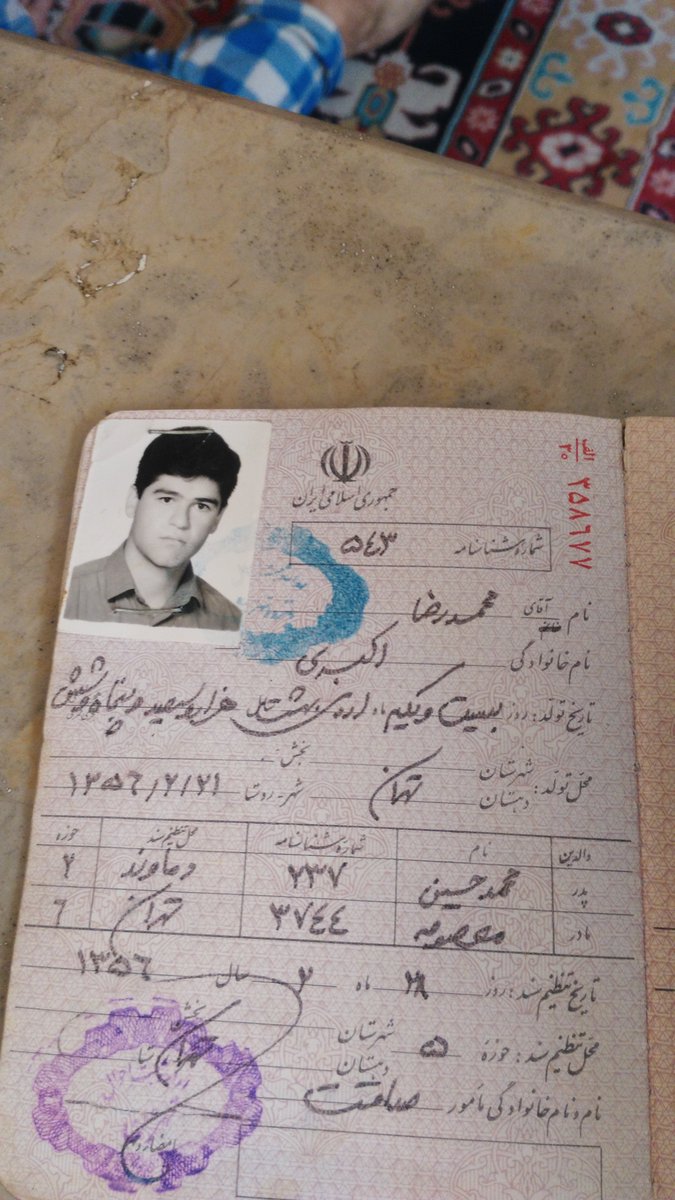 الف
۳۰
۳۵۸۶۷۷
جمهوری اسلامی ایران
شماره شناسنامه ۵۴۳
نام آقای محمدرضا
نام خانوادگی اکبری
تاریخ تولد: روز بیست و یکم ماه اردیبهشت سال هزار و سیصد و پنجاه و شش
محل تولد: شهرستان دهستان تهران بخش
شهر - روستا ۱۳۵۶/۲/۲۱
والدین نام شماره شناسنامه محل تنظیم سند حوزه
پدر محمدحسین ۲۳۷ دماوند ۲
مادر معصومه ۳۷۴۴ تهران ۶
تاریخ تنظیم سند: روز ۲۸ ماه ۲ سال ۱۳۵۶
محل تنظیم سند: حوزه ۵ شهرستان دهستان تهران بخش
نام و نام خانوادگی مأمور